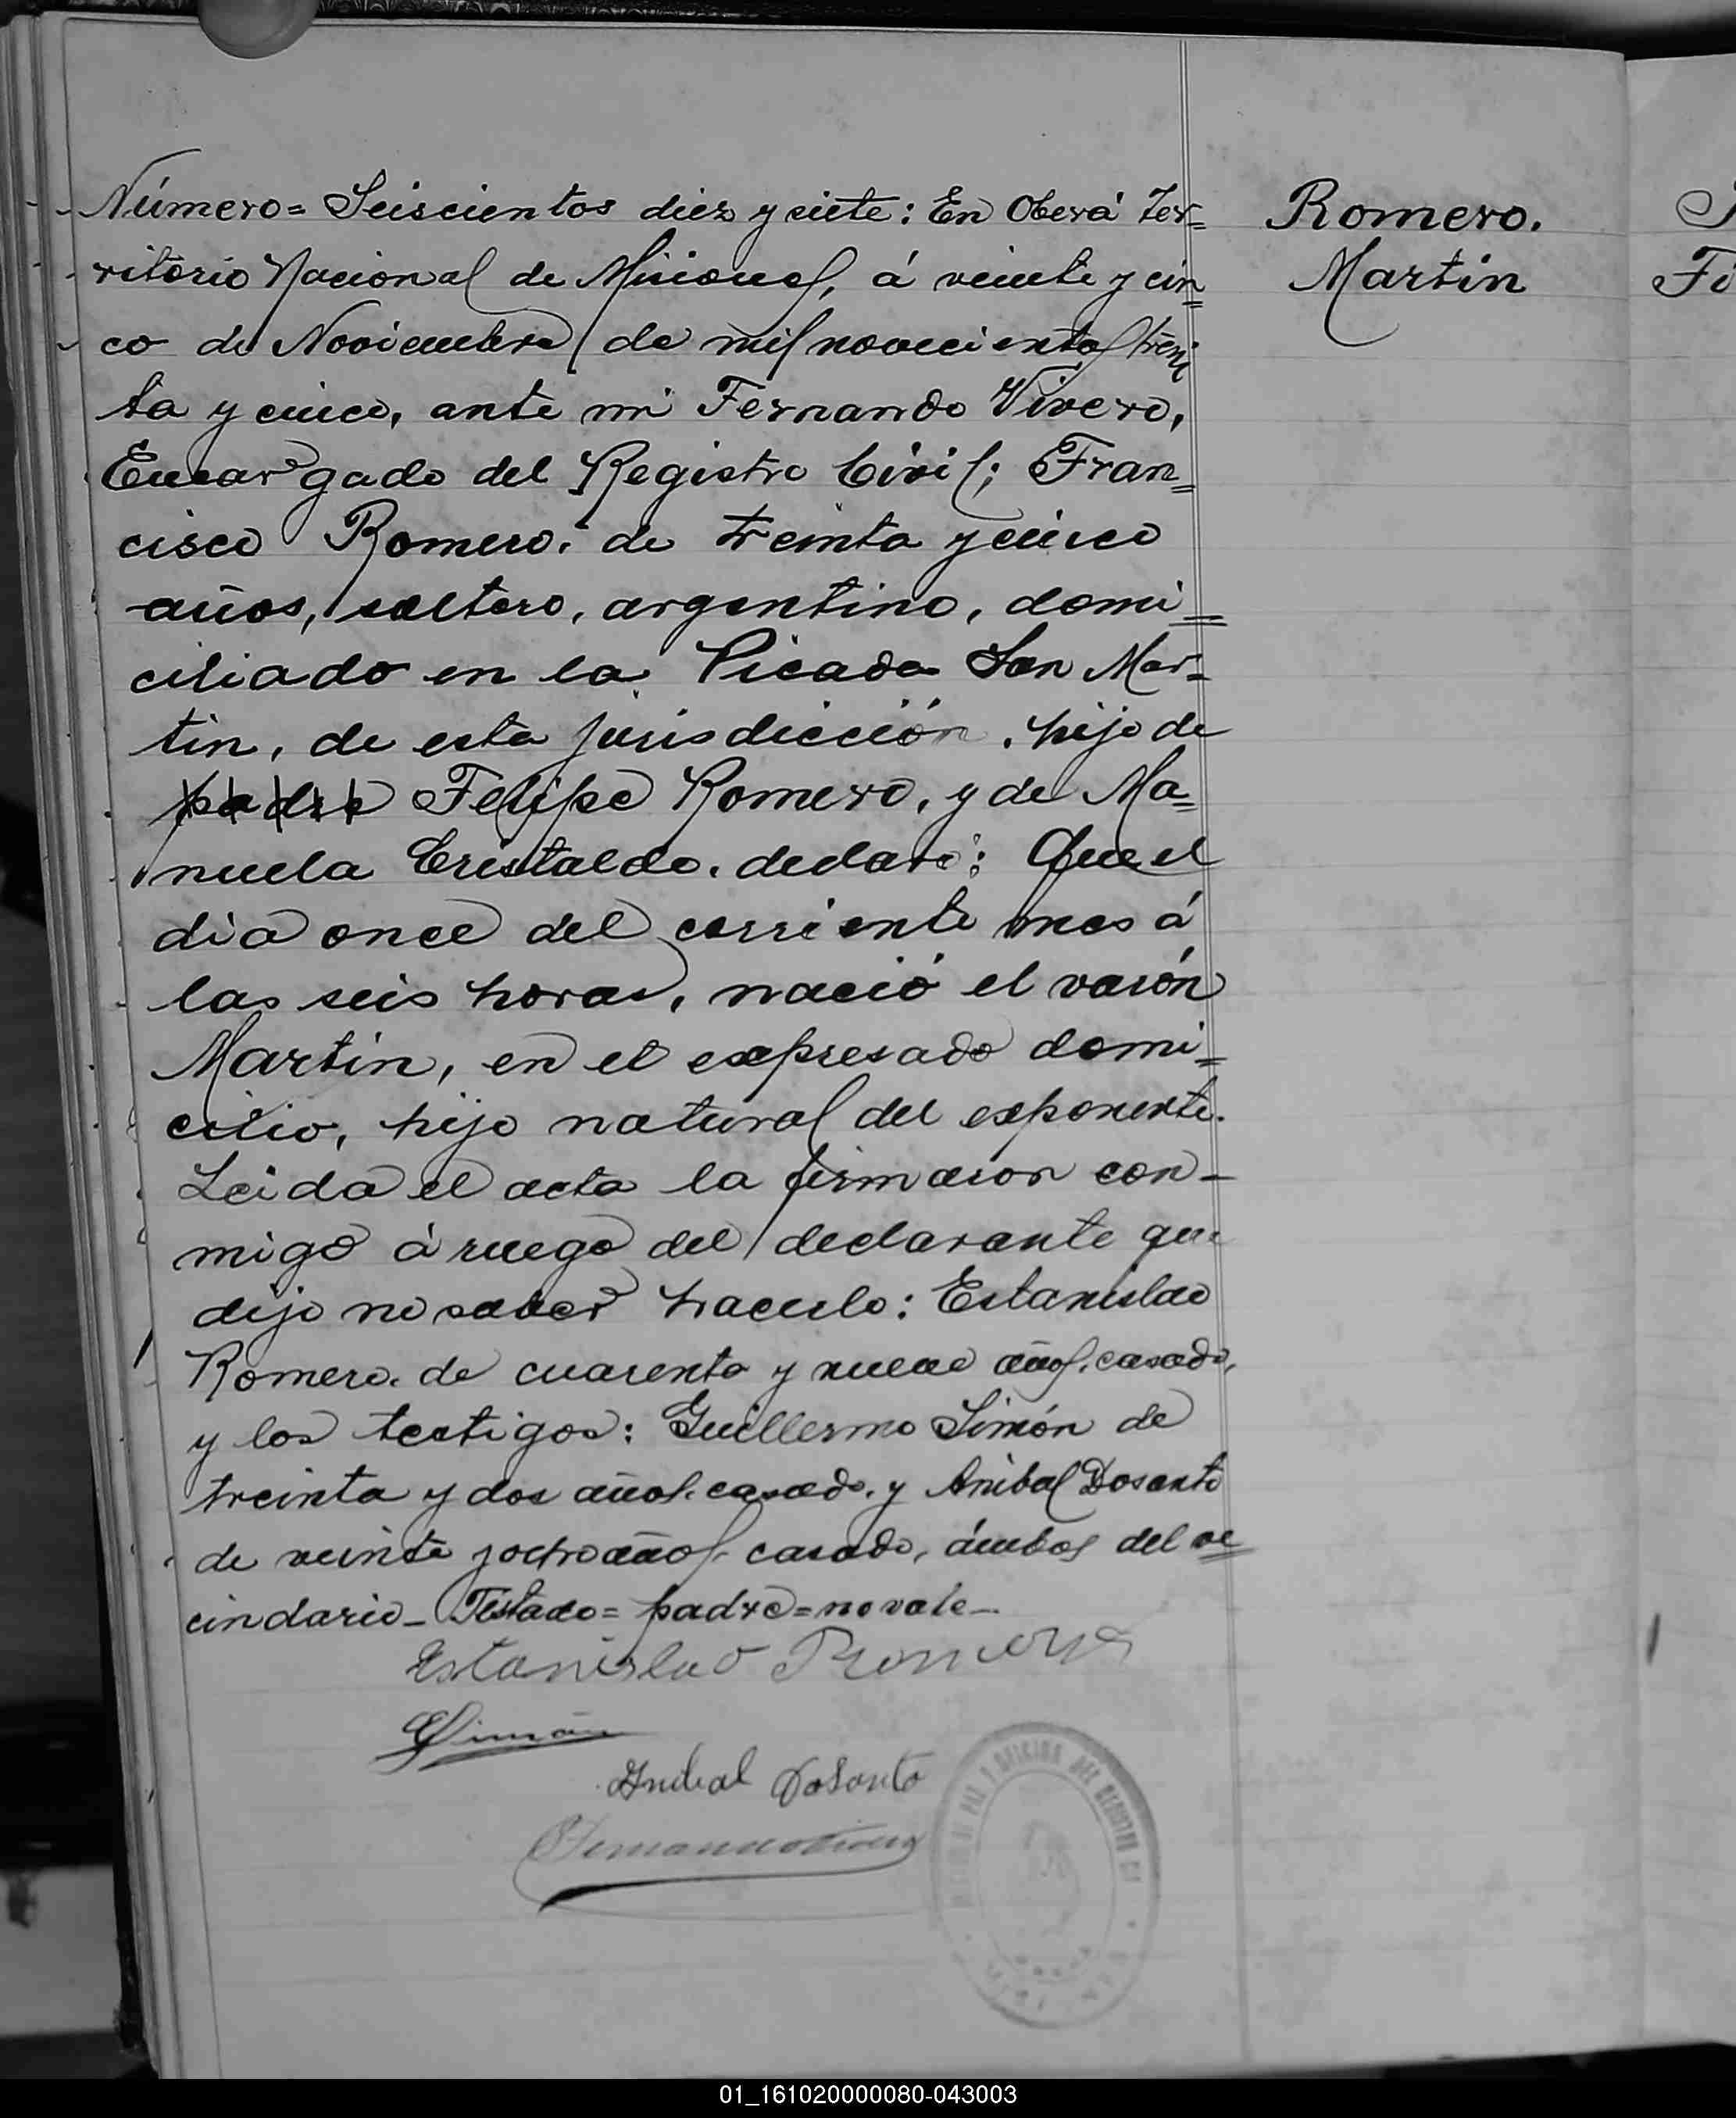 Número= Seiscientos diez y siete: En Oberá Ter=
ritorio Nacional de Misiones, á veinte y cin=
co de Noviembre de mil novecientos trein
ta y cinco, ante mi Fernando Vivero,
Encargado del Registro Civil; Fran=
cisco Romero. de treinta y cinco
años, soltero, argentino, domi=
ciliado en la Picada San Mar=
tin, de esta jurisdicción, hijo de
padre Felipe Romero, y de Ma=
nuela Cristaldo. declaró: Que el
dia once del corriente mes á
las seis horas, nació el varón
Martin, en el expresado domi=
cilio, hijo natural del exponente.
Leida el acta la firmaron con-
migo á ruego del declarante que
dijo no saber hacerlo: Estanislao
Romero. de cuarenta y nueve años. casado,
y los testigos: Guillermo Simón de
treinta y dos años. casado. y Anibal Dosanto
de veinte y ocho años. casado, ámbos del ve
cindario_ Testado= padre= no vale_
Estanislao Romero
GSimón
Anibal DoSanto
Fernando Vivero
Romero.
Martin
01_161020000080-043003